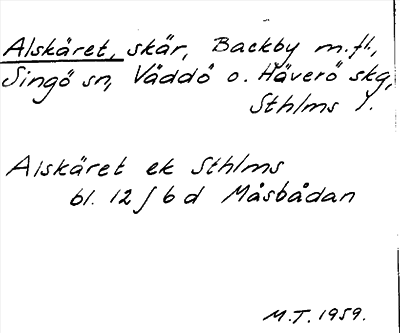 Alskäret, skär, Backby m.fl.,
Singö sn, Väddö o. Häverö skg,
Sthlms l.
Alskäret ek Sthlms
bl. 12 ∫ 6 d Måsbådan
M.T. 1959.